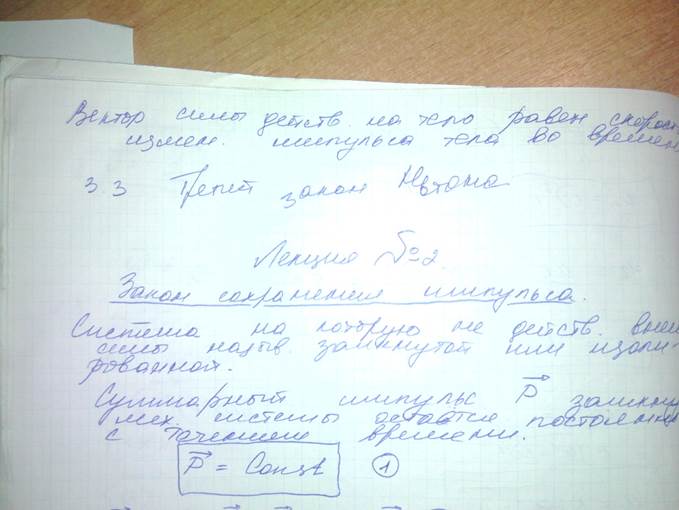 Вектор силы действ. на тело равен скорост
измен. импульса тела во времен
3.3 Третий закон Ньютона
Лекция №2
Закон сохранения импульса.
Система на которую не действ. внеш
силы назыв. замкнутой или изоли-
рованной.
Суммарный импульс P замкну
мех. системы остаётся постоянн
с течением времени.
P = Const 1